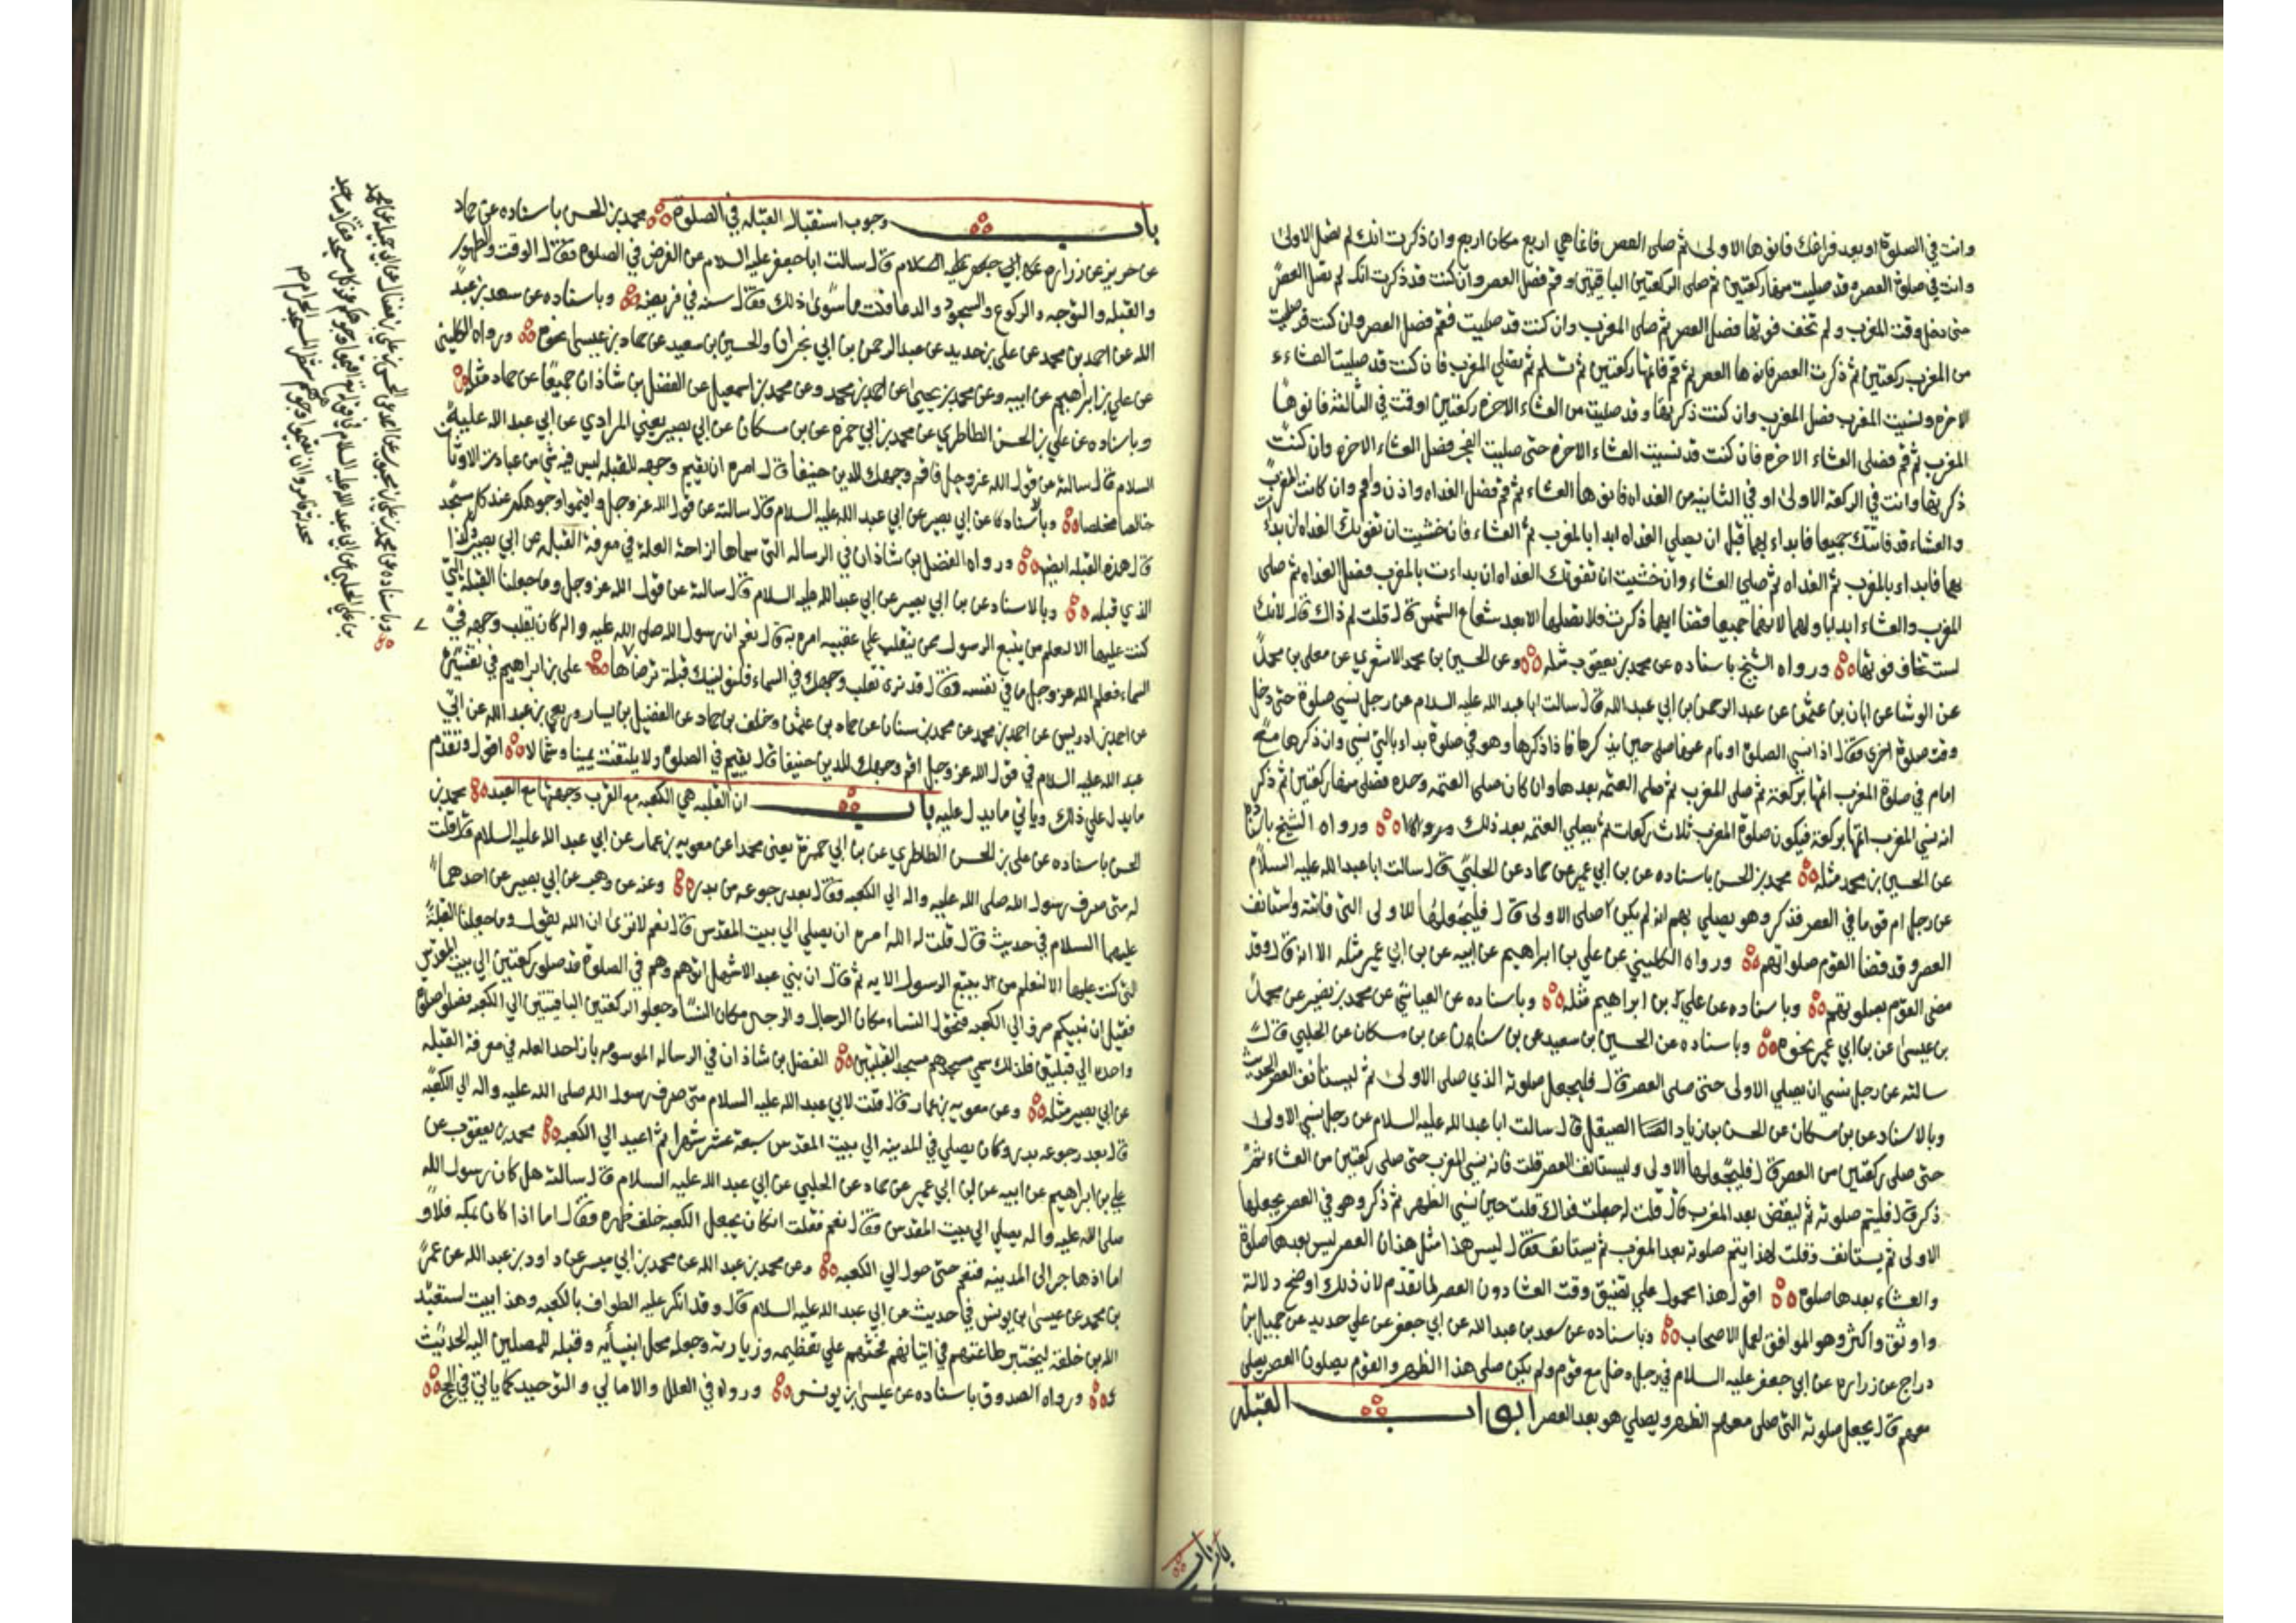 وانت في الصلوة او بعد فراغك فانوها الاولى ثم صلى العصر فانما هي اربع مكان اربع وان ذكرت انك لم تصل الاولى
وانت في صلوة العصر وقد صليت منها ركعتين ثم صلى الركعتين الباقيتين وقم فصل العصر وان كنت قد ذكرت انك لم تصل العصر
حتى دخل وقت المغرب ولم تخف فوتها فصل العصر ثم صلى المغرب وان كنت قد صليت المغرب فقم فصل العصر وان كنت قد صليت
من المغرب ركعتين ثم ذكرت العصر فانوها العصر ثم قم فاتمها ركعتين ثم تسلم ثم تصلي المغرب فان كنت قد صليت العشاء
الاخرة ونسيت المغرب فصل المغرب وان كنت ذكرتها وقد صليت من العشاء الاخرة ركعتين او قمت في الثالثة فانوها
المغرب ثم قم فصلى العشاء الاخرة فان كنت قد نسيت العشاء الاخرة حتى صليت الفجر فصل العشاء الاخرة وان كنت
ذكرتها وانت في الركعة الاولى او في الثانية من الغداه فانوها العشاء ثم قم فصل الغداه واذن واقم وان كانت المغرب
والعشاء قد فاتتك جميعا فابداء بهما قبل ان يصلي الغداه ابدا بالمغرب ثم العشاء فان خشيت ان تفوتك الغداه ان بدات
بهما فابداء بالمغرب ثم الغداه ثم صلي العشاء وان خشيت ان تفوتك الغداه ان بداءت بالمغرب فصل الغداه ثم صلى
المغرب والعشاء ابدا باولهما لانهما جميعا قضا ايهما ذكرت فلا تصلهما الا بعد شعاع الشمس قال قلت لم ذاك قال لانك
لست تخاف فوتها ورواه الشيخ باسناده عن محمد بن يعقوب مثله وعن الحسين بن محمد الاشعري عن معلى بن محمد
عن الوشا عن ابان بن عثمن عن عبد الرحمن بن ابي عبد الله قال سالت ابا عبد الله عليه السلام عن رجل نسي صلوة حتى دخل
وقت صلوة اخرى فقال اذا نسي الصلوة او نام عنها صلى حين يذكرها فاذا ذكرها وهو في صلوة بداء بالتي نسي وان ذكرها مع
امام في صلوة المغرب اتمها بركعة ثم صلى المغرب ثم صلى العتمه بعدها وان كان صلى العتمه وحده فصلى منها ركعتين ثم ذكر
انه نسي المغرب اتمها بركعة فيكون صلوة المغرب ثلاث ركعات ثم يصلي العتمه بعد ذلك ورواه الشيخ باسناده
عن الحسين بن محمد مثله محمد بن الحسن باسناده عن بن ابي عمير عن حماد عن الحلبي قال سالت ابا عبد الله عليه السلام
عن رجل ام قوما في العصر فذكر وهو يصلي بهم انه لم يكن صلى الاولى قال فليجعلها الاولى التي فاتته واستانف
العصر وقد قضا القوم صلواتهم ورواه الكليني عن علي بن ابراهيم عن ابيه عن بن ابي عمير مثله الا انه قال وقد
مضى القوم بصلوتهم وباسناده عن علي بن ابراهيم مثله وباسناده عن العياشي عن محمد بن نصير عن محمد
بن عيسى عن بن ابي عمير نحوه وباسناده عن الحسين بن سعيد عن بن سنان عن بن مسكان عن الحلبي قال
سالته عن رجل نسي ان يصلي الاولى حتى صلى العصر قال فليجعل صلوته الذي صلى الاولى ثم ليستانف العصر الحديث
وبالاسناد عن بن مسكان عن الحسن بن زياد الصيقل قال سالت ابا عبد الله عليه السلام عن رجل نسي الاولى
حتى صلى ركعتين من العصر قال فليجعلها الاولى وليستانف العصر قلت فانه نسي المغرب حتى صلى ركعتين من العشاء ثم
ذكر قال فليتم صلوته ثم ليقض بعد المغرب قال قلت له جعلت فداك قلت حين نسي الظهر ثم ذكر وهو في العصر يجعلها
الاولى ثم يستانف وقلت لهذا يتم صلوته بعد المغرب ثم يستانف فقال ليس هذا مثل هذا ان العصر ليس بعدها صلوة
والعشاء بعدها صلوة اقول هذا محمول على تضيق وقت العشا دون العصر لما تقدم لان ذلك اوضح دلالة
واوثق واكثر وهو الموافق لعمل الاصحاب وباسناده عن سعد بن عبد الله عن ابي جعفر عن علي حديد عن جميل بن
دراج عن زراره عن ابي جعفر عليه السلام في رجل دخل مع قوم ولم يكن صلى هذا الظهر والقوم يصلون العصر يصلى
معهم قال يجعل صلوته التي صلى معهم الظهر ويصلي هو بعد العصر ابواب القبله
باب وجوب استقبال القبله في الصلوة محمد بن الحسن باسناده عن حماد
عن حريز عن زراره قال سالت ابا جعفر عليه السلام عن الفرض في الصلوة فقال الوقت والطهور
والقبله والتوجه والركوع والسجود والدعا قلت ما سوى ذلك فقال سنه في فريضه وباسناده عن سعد بن عبد
الله عن احمد بن محمد عن علي بن حديد عن عبد الرحمن بن ابي نجران والحسين بن سعيد عن حماد بن عيسى نحوه ورواه الكليني
عن علي بن ابراهيم عن ابيه وعن محمد بن يحيى عن احمد بن محمد وعن محمد بن اسمعيل عن الفضل بن شاذان جميعا عن حماد مثله
وباسناده عن علي بن الحسن الطاطري عن محمد بن ابي حمزه عن بن مسكان عن ابي بصير يعني المرادي عن ابي عبد الله عليه
السلام قال سالته عن قول الله عز وجل فاقم وجهك للدين حنيفا قال امره ان يقيم وجهه للقبله ليس فيه شي من عبادت الاوثان
خالصا مخلصا وبالاسناد عن ابي بصير عن ابي عبد الله عليه السلام قال سالته عن قول الله عز وجل واقيموا وجوهكم عند كل مسجد
قال هذه القبله ايضا ورواه الفضل بن شاذان في الرساله التي سماها ازاحة العلة في معرفة القبله عن ابي بصير وكذا
الذي قبله وبالاسناد عن بن ابي بصير عن ابي عبد الله عليه السلام قال سالته عن قول الله عز وجل وما جعلنا القبلة التي
كنت عليها الا لنعلم من يتبع الرسول ممن ينقلب على عقبيه امره به قال نعم ان رسول الله صلى الله عليه واله كان يقلب وجهه في
السماء فعلم الله عز وجل ما في نفسه فقال قد نرى تقلب وجهك في السماء فلنولينك قبلة ترضاها علي بن ابراهيم في تفسيره
عن احمد بن ادريس عن احمد بن محمد عن محمد بن سنان عن حماد بن عثمن وخلف بن حماد عن الفضيل بن يسار وربعي بن عبد الله عن ابي
عبد الله عليه السلام في قول الله عز وجل اقم وجهك للدين حنيفا قال يقيم في الصلوة ولا يلتفت يمينا وشمالا اقول وتقدم
ما يدل علي ذلك وياتي ما يدل عليه باب ان القبله هي الكعبه مع القرب وجهتها مع البعد محمد بن
الحسن باسناده عن علي بن الحسن الطاطري عن بن ابي حمزة يعني محمدا عن معويه بن عمار عن ابي عبد الله عليه السلام قال قلت
له متى صرف رسول الله صلى الله عليه واله الي الكعبه فقال بعد رجوعه من بدر وعنه عن وهب عن ابي بصير عن احدهما
عليهما السلام في حديث قال قلت له الله امره ان يصلي الي بيت المقدس قال نعم الا ترى ان الله يقول وما جعلنا القبلة
التي كنت عليها الا لنعلم من يتبع الرسول الايه ثم قال ان بني عبد الاشهل اتوهم وهم في الصلوة قد صلوا ركعتين الي بيت المقدس
فقيل ان نبيكم صرف الي الكعبه فتحول النساء مكان الرجال والرجال مكان النساء وجعلوا الركعتين الباقيتين الي الكعبه فصلوا صلوة
واحده الي قبلتين فلذلك سمي مسجدهم مسجد القبلتين الفضل بن شاذان في الرساله الموسومه بازاحة العله في معرفة القبله
عن ابي بصير مثله وعن معويه بن عمار قال قلت لابي عبد الله عليه السلام متى صرف رسول الله صلى الله عليه واله الي الكعبه
قال بعد رجوعه بدر وكان يصلي في المدينه الي بيت المقدس سبعة عشر شهرا ثم اعيد الي الكعبه محمد بن يعقوب عن
علي بن ابراهيم عن ابيه عن بن ابي عمير عن حماد عن الحلبي عن ابي عبد الله عليه السلام قال سالته هل كان رسول الله
صلى الله عليه واله يصلي الي بيت المقدس فقال نعم فقلت اكان يجعل الكعبه خلف ظهره فقال اما اذا كان بمكه فلا و
اما اذا هاجر الى المدينه فنعم حتى حول الي الكعبه وعن محمد بن عبد الله عن محمد بن ابي ميسر عن داود بن عبد الله عن عمر
بن محمد عن عيسى بن يونس في حديث عن ابي عبد الله عليه السلام قال وقد انكر عليه الطواف بالكعبه وهذا بيت استعبد
الله به خلقه ليختبر طاعتهم في اتيانهم فحثهم على تعظيمه وزيارته وجعله محل انبيائه وقبله للمصلين اليه الحديث
ورواه الصدوق باسناده عن عيسى بن يونس ورواه في العلل والامالي والتوحيد كما ياتي في الحج
وباسناده عن محمد بن علي بن محبوب
عن ابي عبد الله عليه السلام في قوله
المسجد الحرام
باب ان